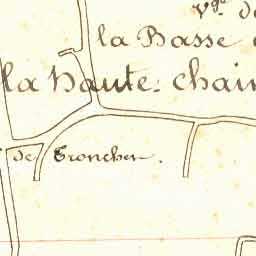 Vge de
la Basse
la haute chain
de Troncher.